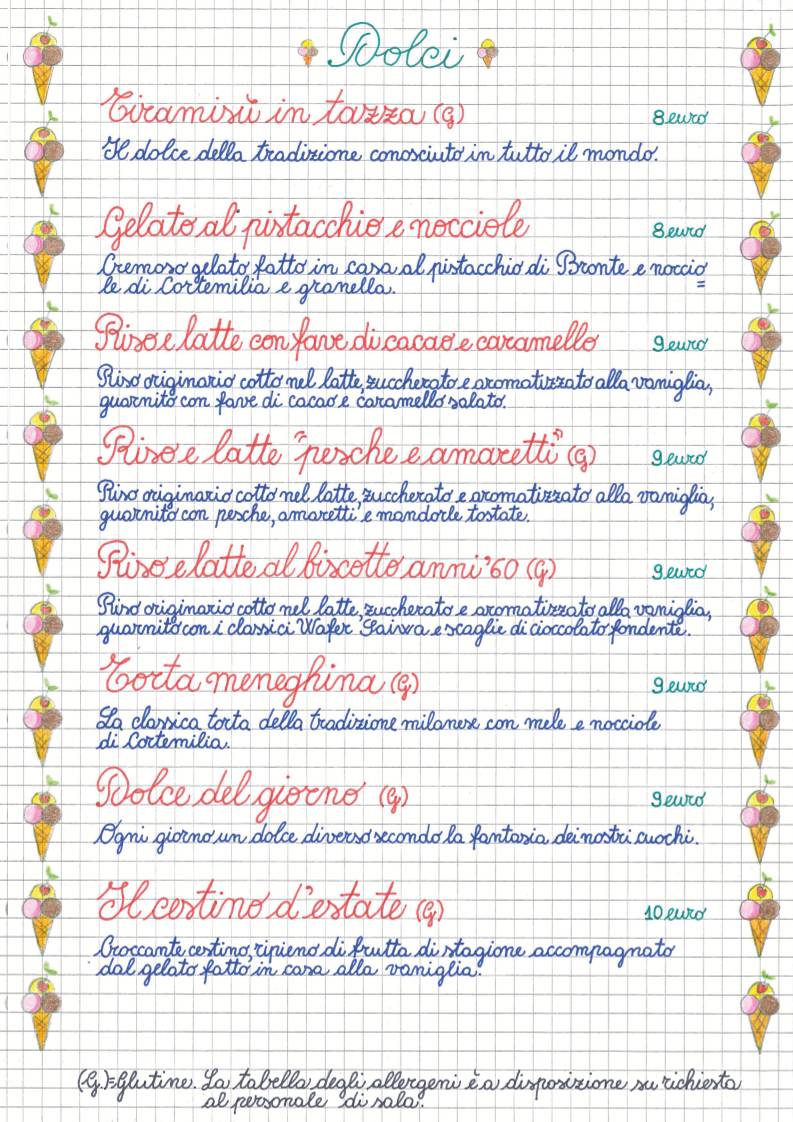 Dolci
Tiramisù in tazza (G) 8 euro
Il dolce della tradizione conosciuto in tutto il mondo.
Gelato al pistacchio e nocciole 8 euro
Cremoso gelato fatto in casa al pistacchio di Bronte e noccio=
le di Cortemilia e granella.
Riso e latte con fave di cacao e caramello 9 euro
Riso originario cotto nel latte, zuccherato e aromatizzato alla vaniglia,
guarnito con fave di cacao e caramello salato.
Riso e latte "pesche e amaretti" (G) 9 euro
Riso originario cotto nel latte, zuccherato e aromatizzato alla vaniglia,
guarnito con pesche, amaretti e mandorle tostate.
Riso e latte al biscotto anni '60 (G) 9 euro
Riso originario cotto nel latte, zuccherato e aromatizzato alla vaniglia,
guarnito con i classici Wafer Saiwa e scaglie di cioccolato fondente.
Torta meneghina (G) 9 euro
La classica torta della tradizione milanese con mele e nocciole
di Cortemilia.
Dolce del giorno (G) 9 euro
Ogni giorno un dolce diverso secondo la fantasia dei nostri cuochi.
Il cestino d'estate (G) 10 euro
Croccante cestino, ripieno di frutta di stagione accompagnato
dal gelato fatto in casa alla vaniglia.
(G.)=Glutine. La tabella degli allergeni è a disposizione su richiesta
al personale di sala.